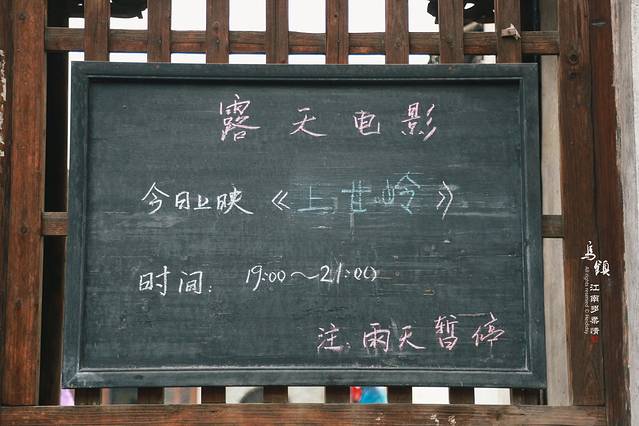 露天电影
今日上映《上甘岭》
时间: 19:00~21:00
注:雨天暂停
乌镇
江南的柔情